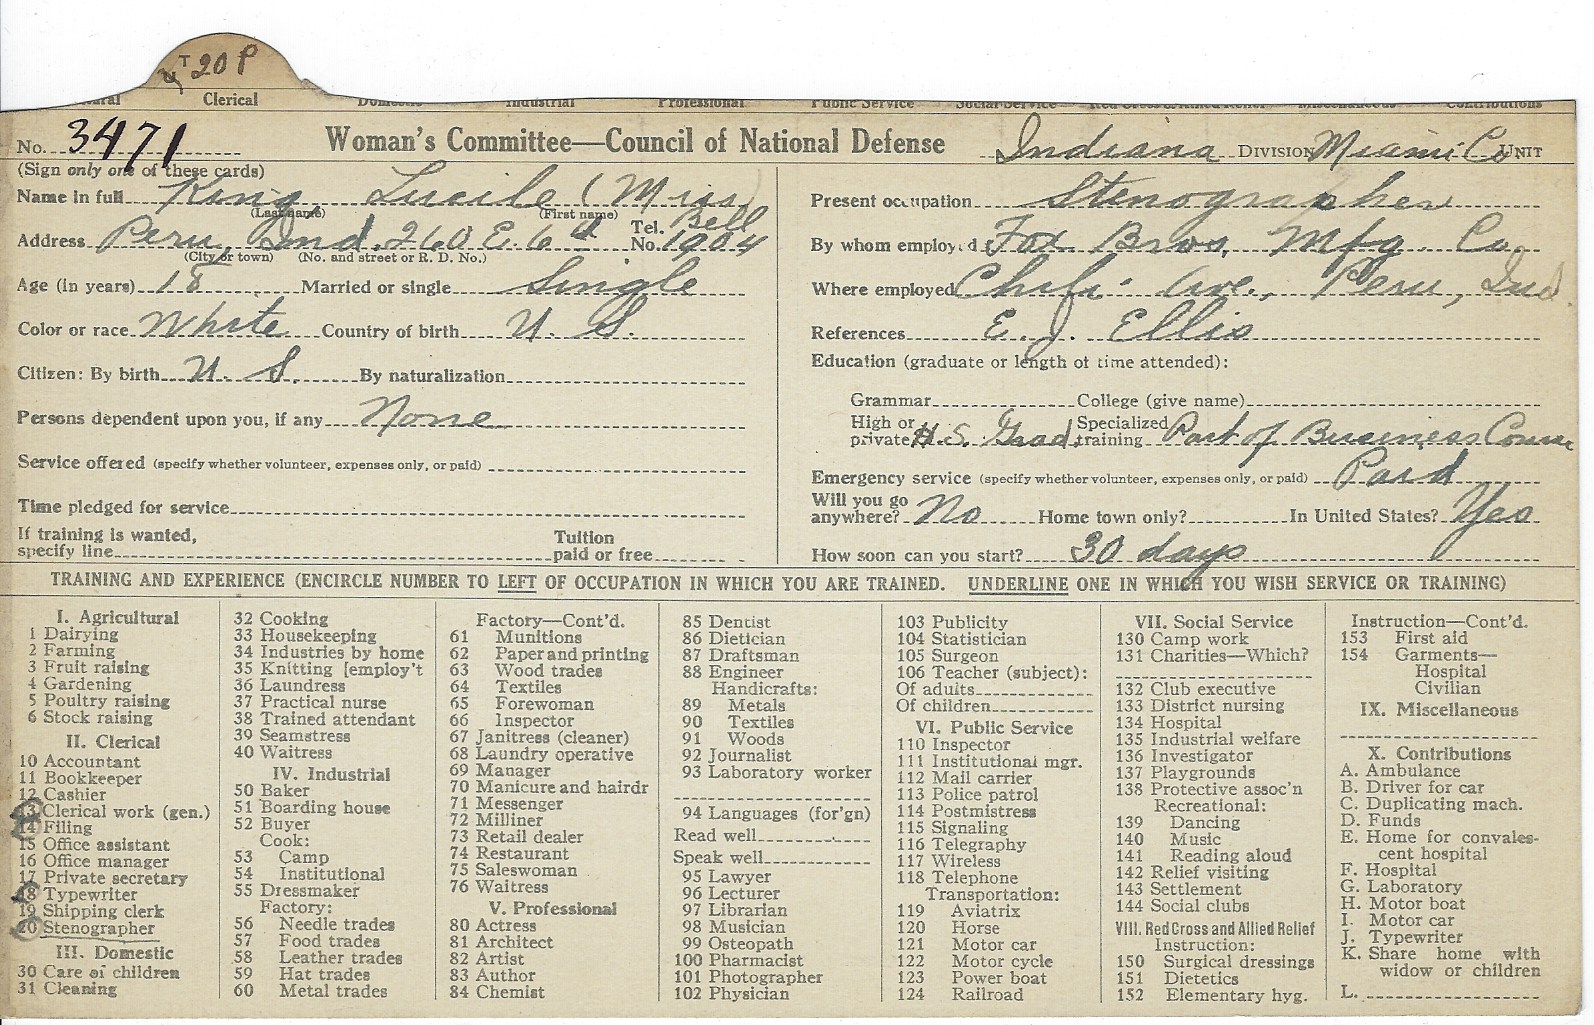 T 20 P
Clerical Domestic Industrial Professional Public Service Social Service Red Cross & Allied Relief Miscellaneous Contributions
No. 3471 Woman's Committee—Council of National Defense Indiana DIVISION Miami Co UNIT
(Sign only one of these cards)
Name in full King, Lucile (Miss)
(Last name) (First name)
Address Peru, Ind. 260 E. 6th Tel. No. Bell 1904
(City or town) (No. and street or R. D. No.)
Age (in years) 18 Married or single Single
Color or race White Country of birth U. S.
Citizen: By birth U. S. By naturalization
Persons dependent upon you, if any None
Service offered (specify whether volunteer, expenses only, or paid)
Time pledged for service
If training is wanted,
specify line
Tuition
paid or free
Present occupation Stenographer
By whom employed Fox Bros. Mfg. Co.
Where employed Chili Ave., Peru, Ind.
References E. J. Ellis
Education (graduate or length of time attended):
Grammar College (give name)
High or
private H. S. Grad.
Specialized
training Part of Business Course
Emergency service (specify whether volunteer, expenses only, or paid) Paid
Will you go
anywhere? No Home town only? In United States? Yes
How soon can you start? 30 days
TRAINING AND EXPERIENCE (ENCIRCLE NUMBER TO LEFT OF OCCUPATION IN WHICH YOU ARE TRAINED. UNDERLINE ONE IN WHICH YOU WISH SERVICE OR TRAINING)
I. Agricultural
1 Dairying
2 Farming
3 Fruit raising
4 Gardening
5 Poultry raising
6 Stock raising
II. Clerical
10 Accountant
11 Bookkeeper
12 Cashier
13 Clerical work (gen.)
14 Filing
15 Office assistant
16 Office manager
17 Private secretary
18 Typewriter
19 Shipping clerk
20 Stenographer
III. Domestic
30 Care of children
31 Cleaning
32 Cooking
33 Housekeeping
34 Industries by home
35 Knitting [employ't
36 Laundress
37 Practical nurse
38 Trained attendant
39 Seamstress
40 Waitress
IV. Industrial
50 Baker
51 Boarding house
52 Buyer
Cook:
53 Camp
54 Institutional
55 Dressmaker
Factory:
56 Needle trades
57 Food trades
58 Leather trades
59 Hat trades
60 Metal trades
Factory—Cont'd.
61 Munitions
62 Paper and printing
63 Wood trades
64 Textiles
65 Forewoman
66 Inspector
67 Janitress (cleaner)
68 Laundry operative
69 Manager
70 Manicure and hairdr
71 Messenger
72 Milliner
73 Retail dealer
74 Restaurant
75 Saleswoman
76 Waitress
V. Professional
80 Actress
81 Architect
82 Artist
83 Author
84 Chemist
85 Dentist
86 Dietician
87 Draftsman
88 Engineer
Handicrafts:
89 Metals
90 Textiles
91 Woods
92 Journalist
93 Laboratory worker
94 Languages (for'gn)
Read well
Speak well
95 Lawyer
96 Lecturer
97 Librarian
98 Musician
99 Osteopath
100 Pharmacist
101 Photographer
102 Physician
103 Publicity
104 Statistician
105 Surgeon
106 Teacher (subject):
Of adults
Of children
VI. Public Service
110 Inspector
111 Institutional mgr.
112 Mail carrier
113 Police patrol
114 Postmistress
115 Signaling
116 Telegraphy
117 Wireless
118 Telephone
Transportation:
119 Aviatrix
120 Horse
121 Motor car
122 Motor cycle
123 Power boat
124 Railroad
VII. Social Service
130 Camp work
131 Charities—Which?
132 Club executive
133 District nursing
134 Hospital
135 Industrial welfare
136 Investigator
137 Playgrounds
138 Protective assoc'n
Recreational:
139 Dancing
140 Music
141 Reading aloud
142 Relief visiting
143 Settlement
144 Social clubs
VIII. Red Cross and Allied Relief
Instruction:
150 Surgical dressings
151 Dietetics
152 Elementary hyg.
Instruction—Cont'd.
153 First aid
154 Garments—
Hospital
Civilian
IX. Miscellaneous
X. Contributions
A. Ambulance
B. Driver for car
C. Duplicating mach.
D. Funds
E. Home for convales-
cent hospital
F. Hospital
G. Laboratory
H. Motor boat
I. Motor car
J. Typewriter
K. Share home with
widow or children
L.